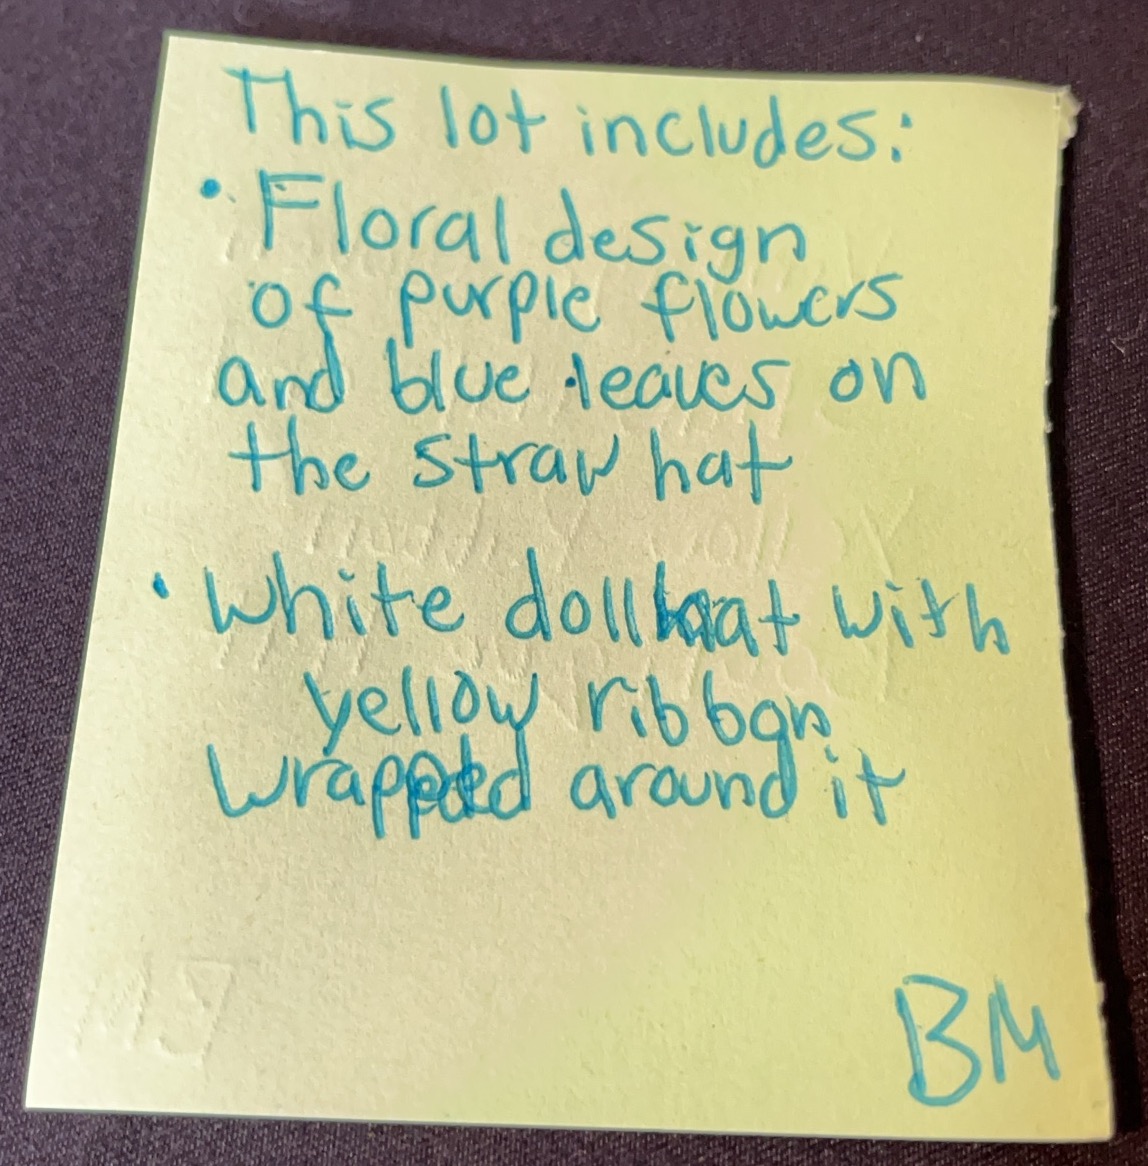 This lot includes:
• Floral design
of purple flowers
and blue leaves on
the straw hat
• White doll hat with
yellow ribbon
wrapped around it
BM